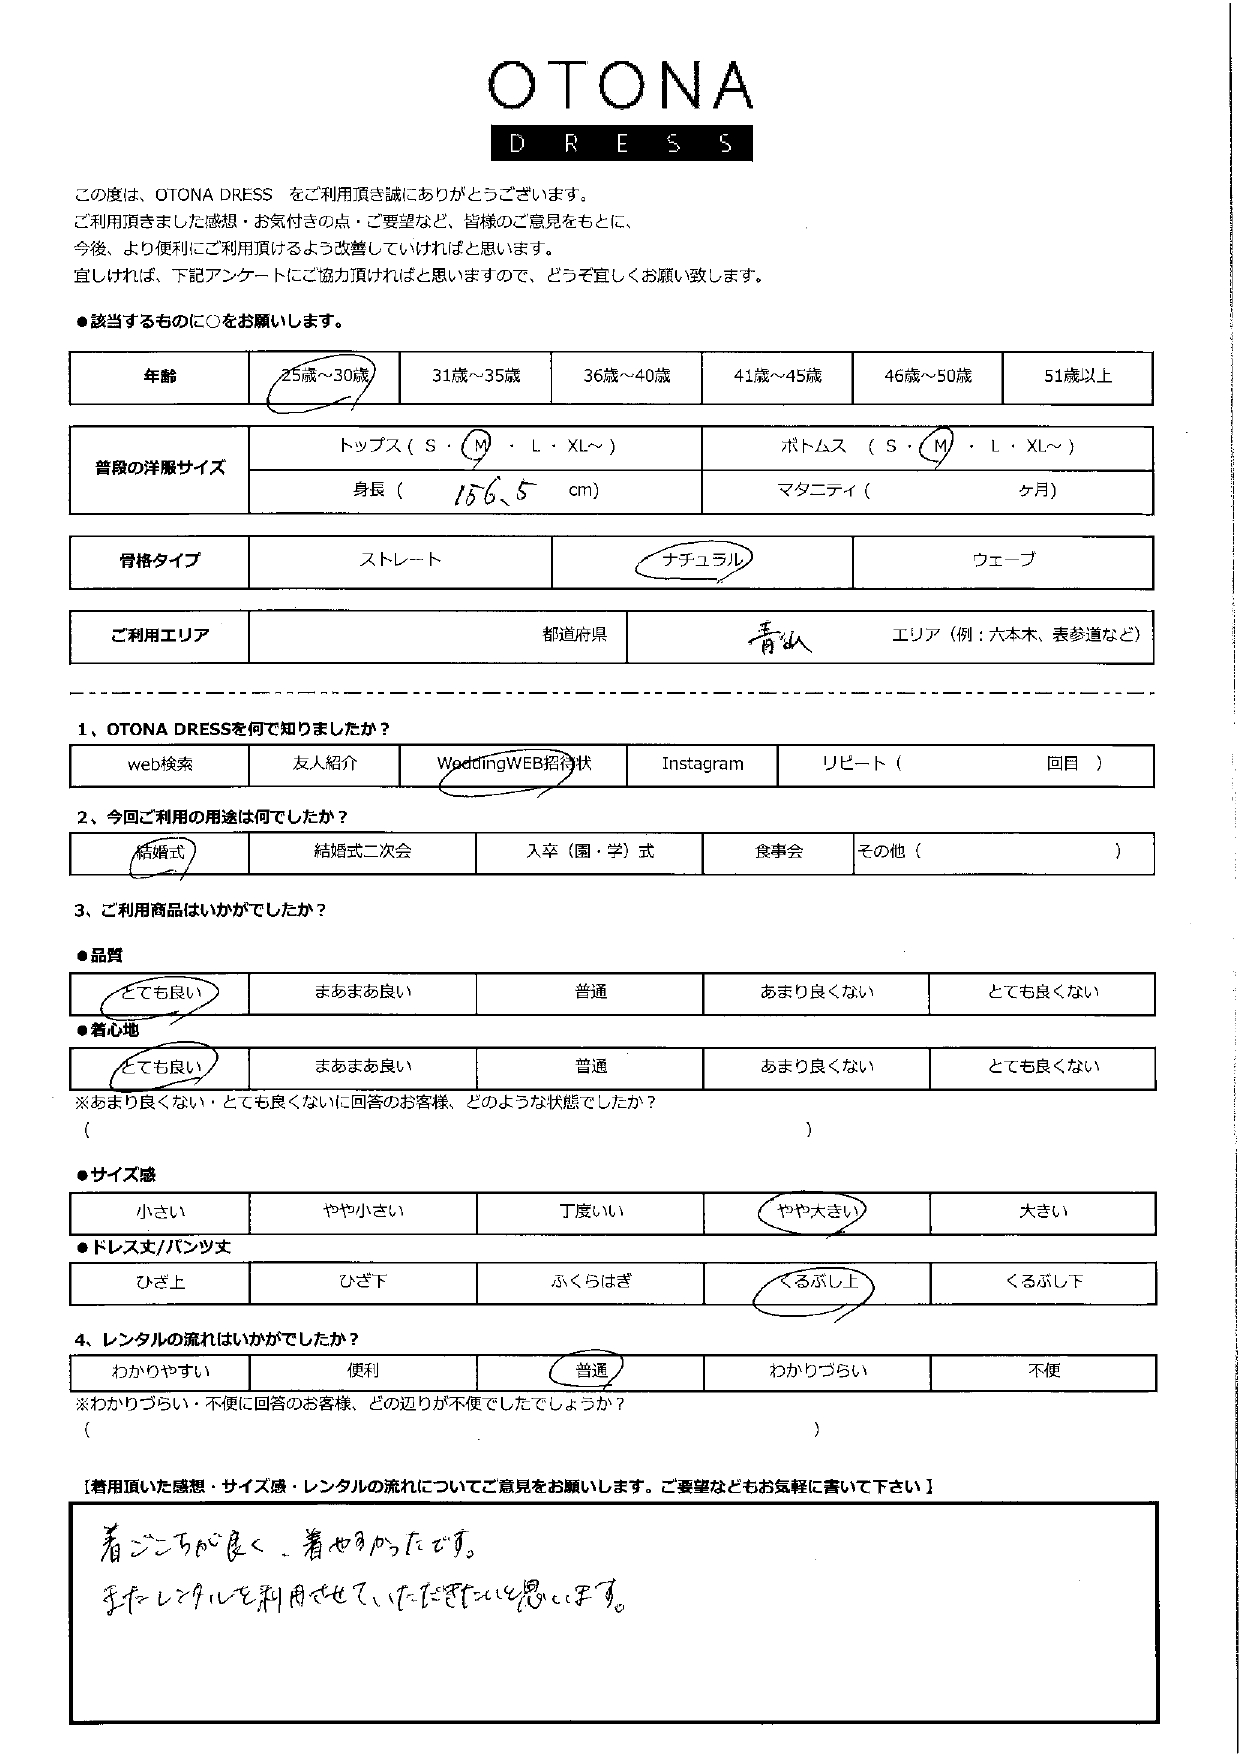 OTONA
DRESS
この度は、OTONA DRESS　をご利用頂き誠にありがとうございます。
ご利用頂きました感想・お気付きの点・ご要望など、皆様のご意見をもとに、
今後、より便利にご利用頂けるよう改善していければと思います。
宜しければ、下記アンケートにご協力頂ければと思いますので、どうぞ宜しくお願い致します。
●該当するものに〇をお願いします。
年齢 25歳～30歳 31歳～35歳 36歳～40歳 41歳～45歳 46歳～50歳 51歳以上
普段の洋服サイズ トップス ( S ・ M ・ L ・ XL～ ) ボトムス ( S ・ M ・ L ・ XL～ )
身長 ( 156.5 cm) マタニティ ( ケ月)
骨格タイプ ストレート ナチュラル ウェーブ
ご利用エリア 都道府県 青山 エリア（例：六本木、表参道など）
1、OTONA DRESSを何で知りましたか？
web検索 友人紹介 WeddingWEB招待状 Instagram リピート（ 回目 ）
2、今回ご利用の用途は何でしたか？
結婚式 結婚式二次会 入卒（園・学）式 食事会 その他（ ）
3、ご利用商品はいかがでしたか？
●品質
とても良い まあまあ良い 普通 あまり良くない とても良くない
●着心地
とても良い まあまあ良い 普通 あまり良くない とても良くない
※あまり良くない・とても良くないに回答のお客様、どのような状態でしたか？
（ ）
●サイズ感
小さい やや小さい 丁度いい やや大きい 大きい
●ドレス丈/パンツ丈
ひざ上 ひざ下 ふくらはぎ くるぶし上 くるぶし下
4、レンタルの流れはいかがでしたか？
わかりやすい 便利 普通 わかりづらい 不便
※わかりづらい・不便に回答のお客様、どの辺りが不便でしたでしょうか？
（ ）
【着用頂いた感想・サイズ感・レンタルの流れについてご意見をお願いします。ご要望などもお気軽に書いて下さい】
着ごこちが良く、着やすかったです。
またレンタルを利用させていただきたいと思います。